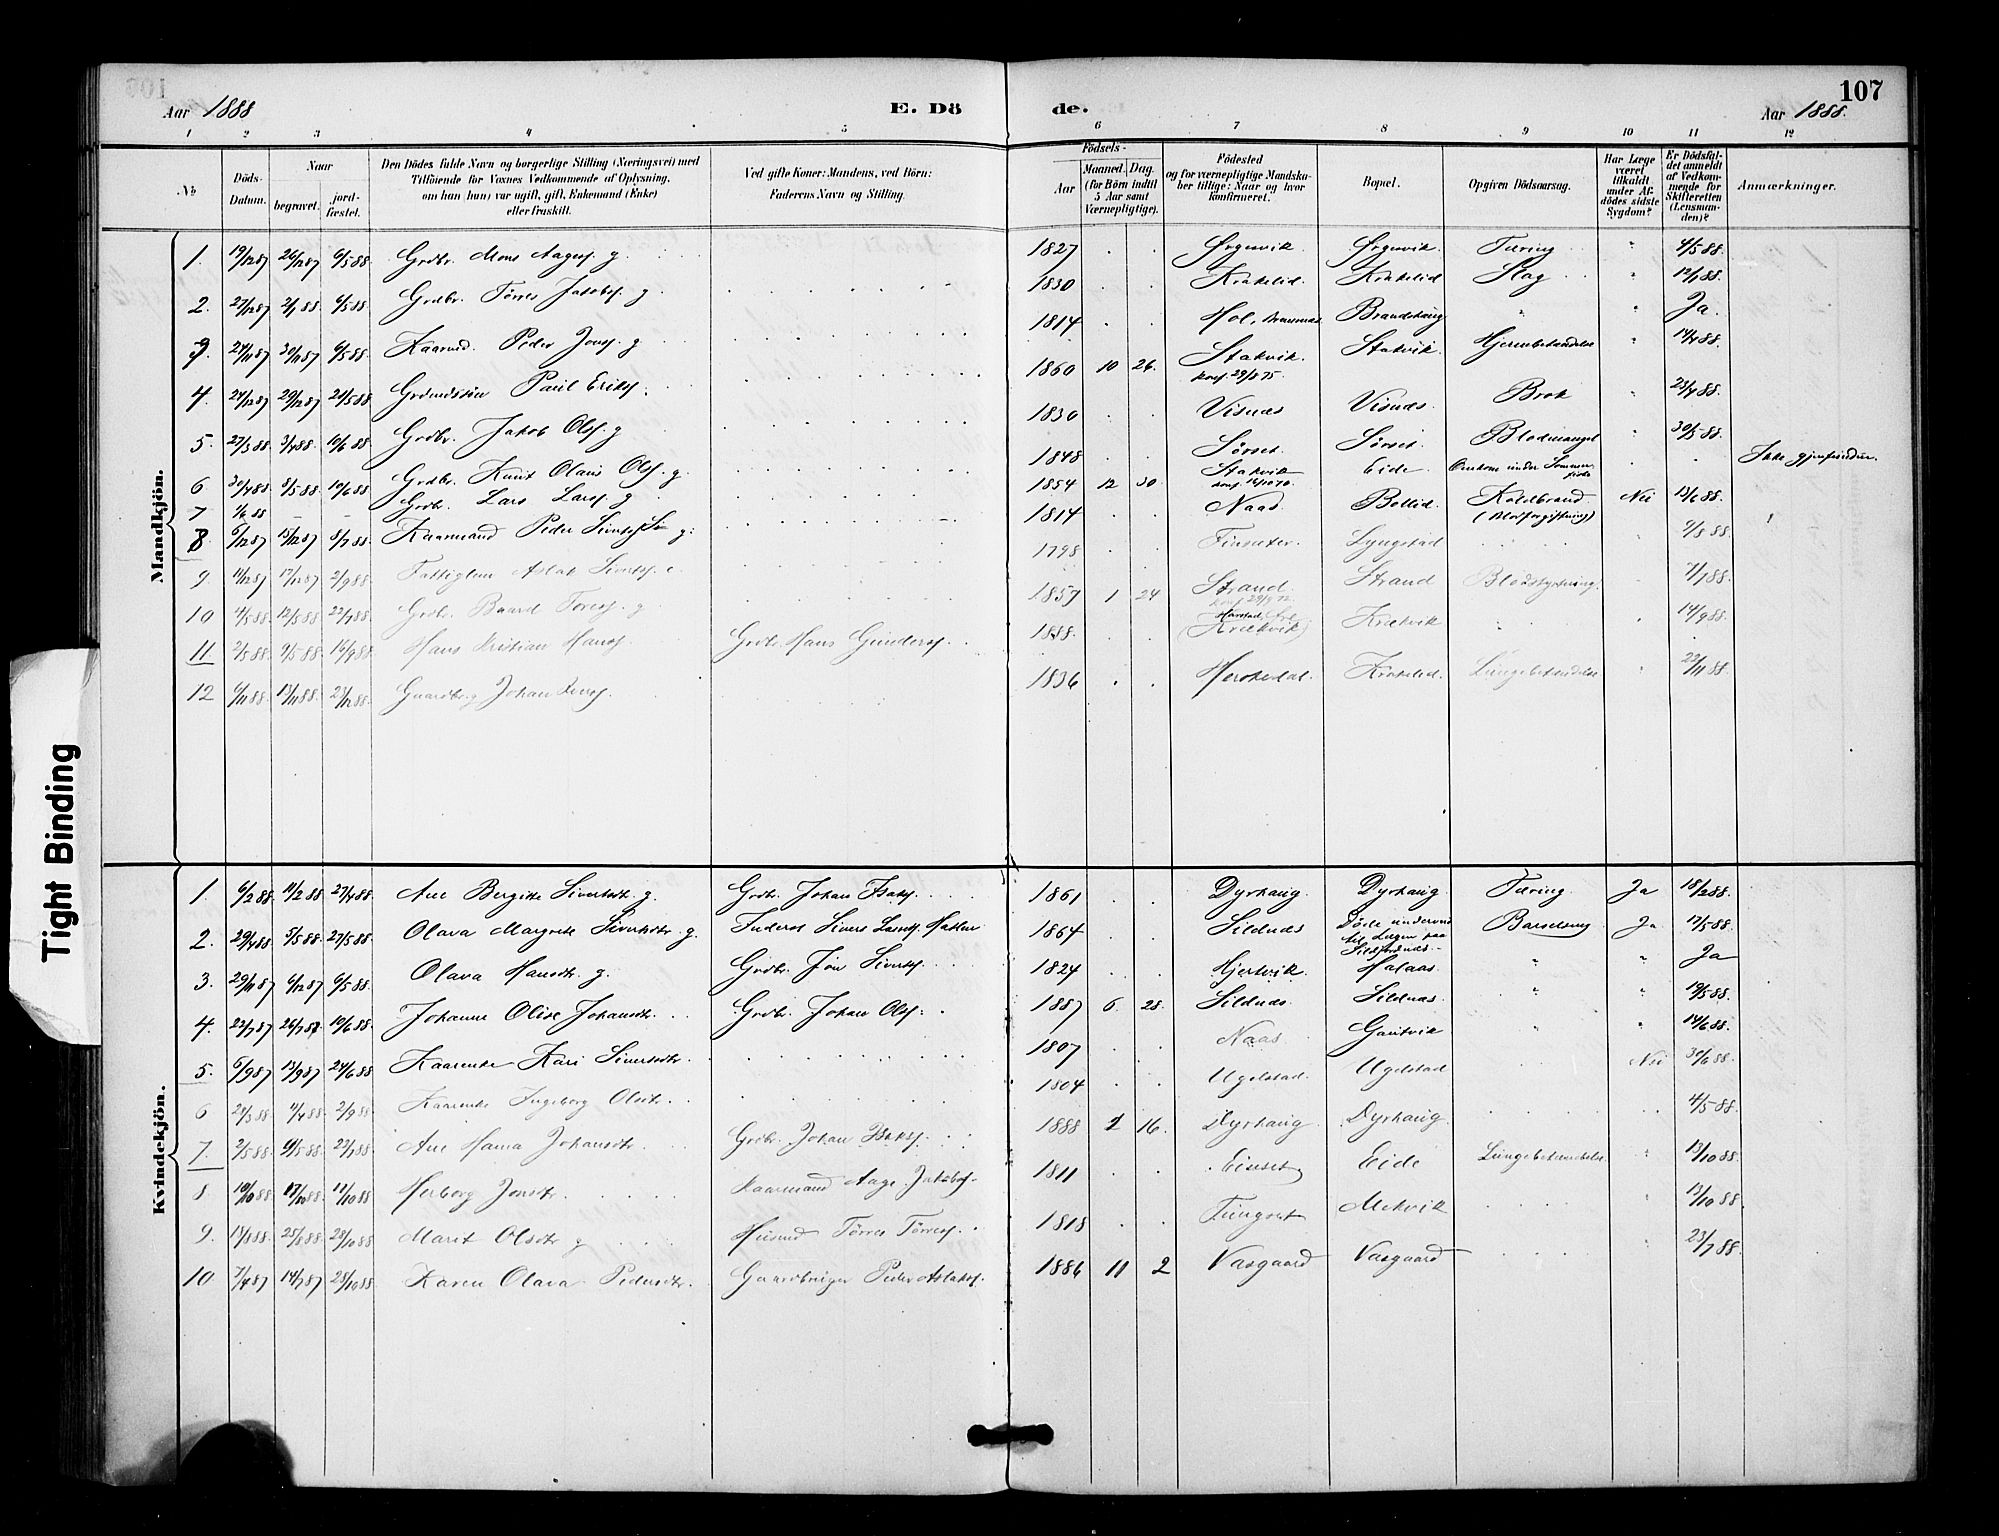 107
Aar 1888
E. Dö
de.
Aar 1888.
1 2 3 4 5 6 7 8 9 10 11 12
No
Döds-Datum.
Naar
begravet.
jord-fæstet.
Den Dödes fulde Navn og borgerlige Stilling (Næringsvei) med
Tilföiende for Voxnes Vedkommende af Oplysning,
om han (hun) var ugift, gift, Enkemand (Enke)
eller fraskilt.
Ved gifte Koner: Mandens, ved Börn:
Faderens Navn og Stilling.
Födsels-
Aar
Maaned. Dag.
(for Börn indtil
5 Aar samt
Værnepligtige).
Födested
og for værnepligtige Mandska-
ber tillige: Naar og hvor
konfirmeret.
Bopæl.
Opgiven Dödsaarsag.
Har Læge
været
tilkaldt
under Af-
dödes sidste
Sygdom?
Er Dödsfal-
det anmeldt
af Vedkom-
mende for
Skifteretten
(Lensman-
den)?
Anmærkninger.
Mandkjön.
1. 19/12 87 26/12 87 6/5 88 Grdbr. Mons Aagess. g 1827 Ørgenvik Ørgenvik Tæring " 4/5 88
2. 27/12 87 2/1 88 6/5 88 Grdbr. Tørres Jakobs. g 1830 Krakelid Krakelid Slag " 12/1 88.
3. 24/11 87 30/11 87 6/5 88 Kaarmd. Peder Jons. g 1814 Hol, Bremsnes Brandshaug " " Ja.
4. 24/12 87 29/12 87 20/5 88 Grdmdssøn Paul Eriks. 1860 10 26. Stakvik. Stakvik. " 14/4 88.
konf. 29/8 75.
5. 27/3 88 3/4 88 10/6 88. Grdbr. Jakob Ols. g 1830 Visnæs Visnæs. Brok " 23/4 88.
6 30/4 88 8/5 88 10/6 88 Grdbr. Knut Olaus Ols. g. 1848 Sørset Sørset. Blodmangel " 30/5 88.
7 1/6 88 – – Grdbr. Lars Lars. g 1854 12 30. Stakvik Eide. Omkom under Sommer- Ikke gjenfunden.
8 6/12 87 15/12 87 8/7 88. Kaarmand Peder g. 1814 Naas Bollid. Koldbrand Nei 13/6 88.
(Blodforgiftning)
9 11/12 87 17/12 87 2/9 88. Fattiglem Aslak Siverts. 1798 Lyngstad
10 4/5 88 12/5 88 22/7 88 Grdbr. Baard Tores. g 1857 1 24 Strand Strand Blodstyrtning 7/7 88
11. 2/5 88 9/5 88 16/9 88 Hans Kristian Hans. Grdbr. Hans Gunders. 1888. (Krækvik) Krækvik 14/9 88.
12 6/11 88 13/11 88 23/12 88. Gaardbr. Johan 1836 Krakelid. Lungebetændelse 22/11 88
Kvindekjön.
1. 6/2 88 11/2 88 27/4 88. Ane Bergitte Sivertsdtr. g. Grdbr. Johan Isaks. 1861 Dyrhaug Dyrhaug. Tæring. Ja 18/2 88.
2. 29/4 88 5/5 88 27/5 88. Olava Margrete Sivertsdtr. g. 1864 Sildnæs Døde underveis Barselseng Ja 17/5 88.
til Lægen paa
3. 29/11 87 6/12 87 6/5 88. Olava Hansdtr. g. Grdbr. Jon Siverts. 1824 Hjertvik. Halaas. " " Ja
4. 22/7 87 26/7 87 10/6 88. Johanne Olise Johansdtr. Grdbr. Johan Ols. 1887 6. 28. Sildnæs. Sildnæs. " " 19/5 88.
5. 6/9 87 13/9 87 24/6 88 Kaarenke Kari Sivertsdtr. 1807 Naas Gautvik " 14/6 88.
6 4/4 88 2/9 88 Kaarenke Ingeborg Olsdtr. 1804 Ugelstad. Ugelstad Nei 30/6 88.
7. 2/5 88 22/7 88 Ane Hanna Johansdtr. Grdbr. Johan Isaks. 1888 2 16. Dyrhaug. Dyrhaug. 4/5 88
8. 10/10 88 17/10 88. 11/10 88 Herborg Jonsdtr. Kaarmand Aage Jakobs. 1811 Einset Eide Lungebetændelse " 13/10 88.
9. 18/8 88 25/8 88 28/10 88 Marit Olsdtr. g Husmd Tørres Tørress. 1818 Tungset Mekvik 13/10 88.
10. 7/4 87 14/7 87 28/10 88 Karen Olava Pedersdtr. Gaardbruger Peder Aslaks. 1886 11 2 Vasgaard Vasgaard 23/7 88.
Tight Binding